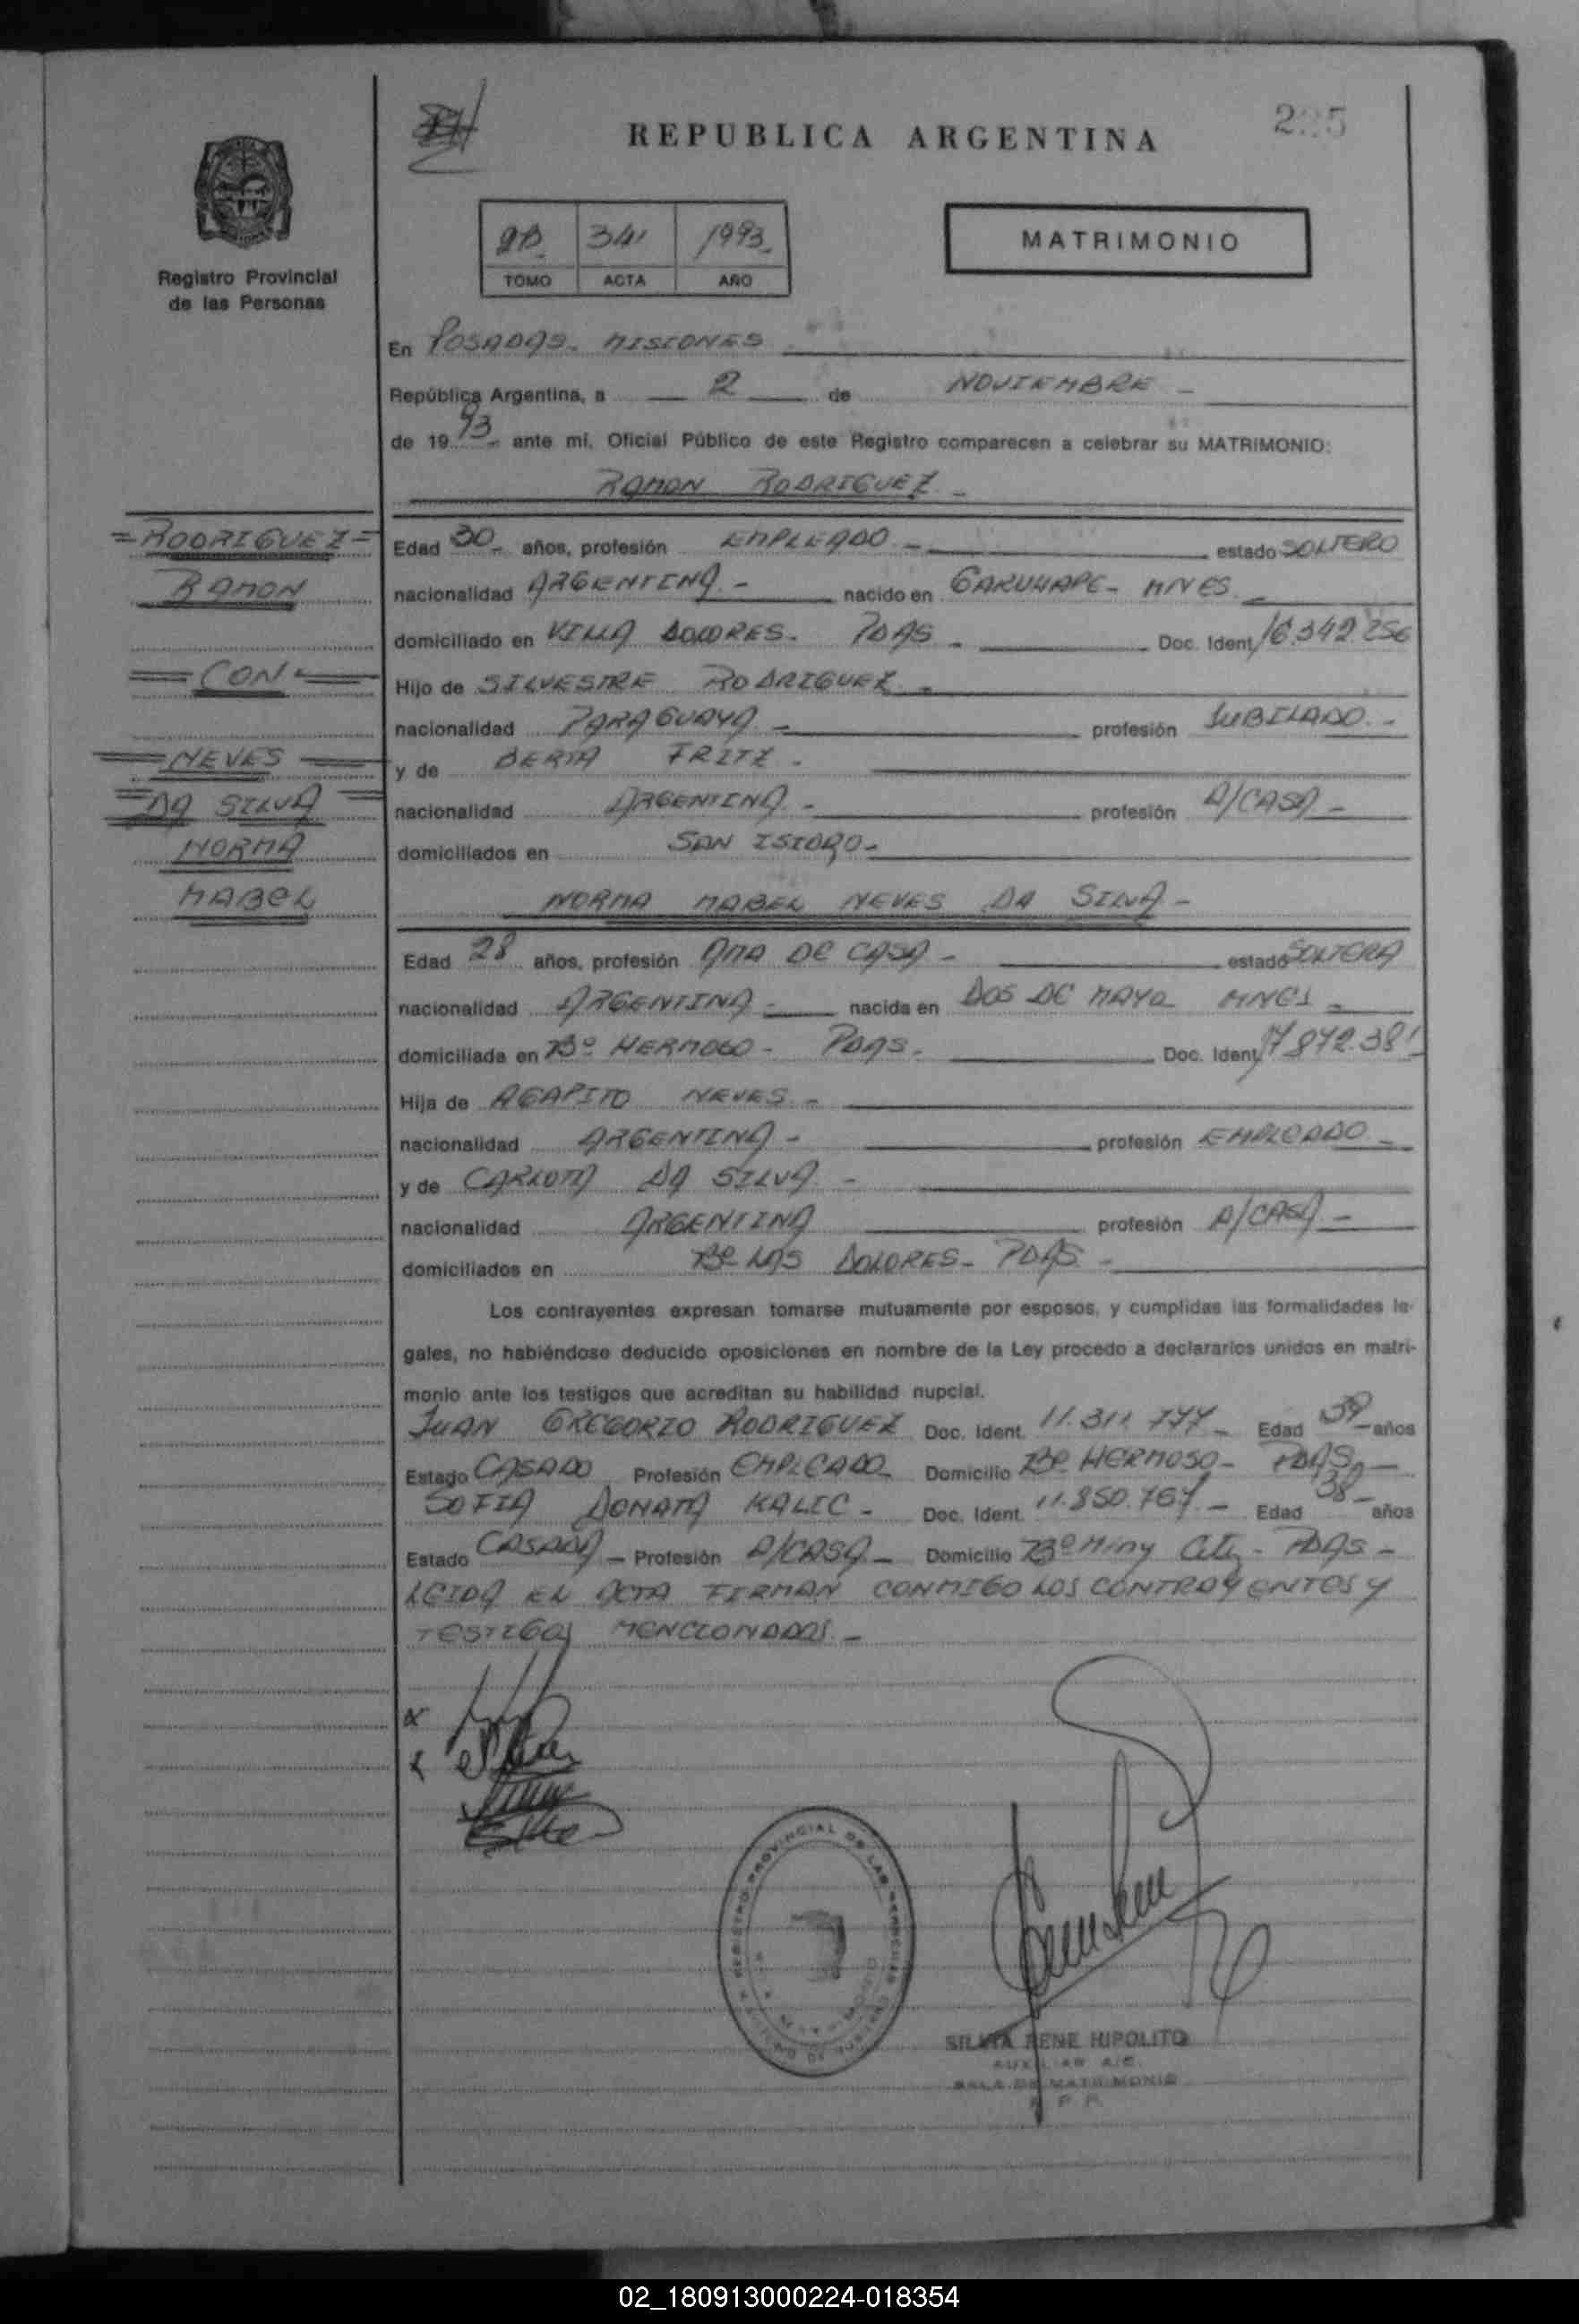 REPUBLICA ARGENTINA
Registro Provincial
de las Personas
341 1993
TOMO ACTA AÑO
MATRIMONIO
En POSADAS - MISIONES
República Argentina, a 2 de NOVIEMBRE -
de 1993 - ante mí, Oficial Público de este Registro comparecen a celebrar su MATRIMONIO:
RAMON RODRIGUEZ -
= RODRIGUEZ =
RAMON
= CON =
= NEVES =
= DA SILVA =
NORMA
MABEL
Edad 30 - años, profesión EMPLEADO - estado SOLTERO
nacionalidad ARGENTINA - nacido en GARUHAPE - MNES -
domiciliado en VILLA DOLORES - PDAS - Doc. Ident. 16.342.256
Hijo de SILVESTRE RODRIGUEZ -
nacionalidad PARAGUAYA - profesión JUBILADO -
y de BERTA FRITZ -
nacionalidad ARGENTINA - profesión A/CASA -
domiciliados en SAN ISIDRO -
NORMA MABEL NEVES DA SILVA -
Edad 28 años, profesión AMA DE CASA - estado SOLTERA
nacionalidad ARGENTINA - nacida en DOS DE MAYO MNES -
domiciliada en Bº HERMOSO - PDAS - Doc. Ident. 17.872.381
Hija de AGAPITO NEVES -
nacionalidad ARGENTINA - profesión EMPLEADO -
y de CARLOTA DA SILVA -
nacionalidad ARGENTINA profesión A/CASA -
domiciliados en Bº LAS DOLORES - PDAS -
Los contrayentes expresan tomarse mutuamente por esposos, y cumplidas las formalidades le-
gales, no habiéndose deducido oposiciones en nombre de la Ley procedo a declararlos unidos en matri-
monio ante los testigos que acreditan su habilidad nupcial.
JUAN GREGORIO RODRIGUEZ Doc. Ident. 11.311.777 - Edad 39 - años
Estado CASADO Profesión EMPLEADO - Domicilio Bº HERMOSO - PDAS -
SOFIA DONATA KALIC - Doc. Ident. 11.850.767 - Edad 38 - años
Estado CASADA - Profesión A/CASA - Domicilio Bº Miny City - PDAS -
LEIDA EL ACTA FIRMAN CONMIGO LOS CONTRAYENTES Y
TESTIGOS MENCIONADOS -
REGISTRO PROVINCIAL DE LAS PERSONAS
SILVIA RENE HIPOLITO
AUXILIAR A/C.
SALA DE MATRIMONIO
R. P. P.
02_180913000224-018354